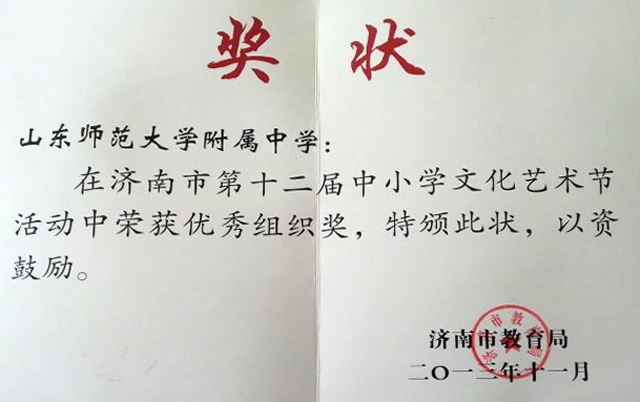 奖状
山东师范大学附属中学：
在济南市第十二届中小学文化艺术节
活动中荣获优秀组织奖，特颁此状，以资
鼓励。
济南市教育局
二〇一三年十一月
济南市教育局